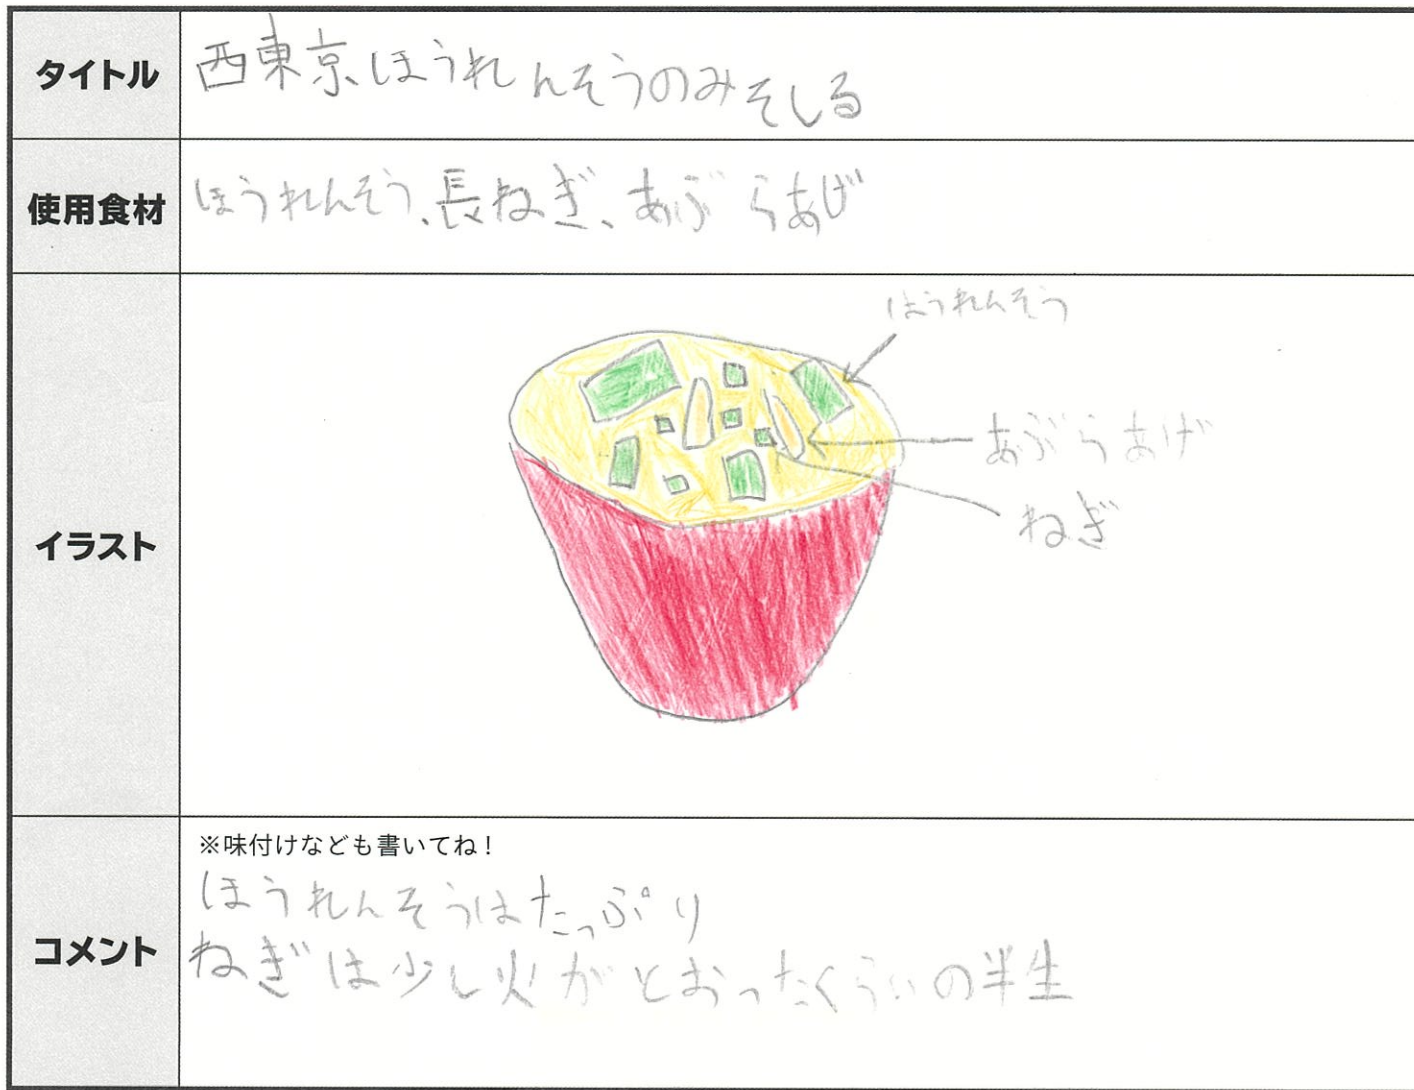 タイトル
西東京ほうれんそうのみそしる
使用食材
ほうれんそう、長ねぎ、あぶらあげ
イラスト
ほうれんそう
あぶらあげ
ねぎ
コメント
※味付けなども書いてね！
ほうれんそうはたっぷり
ねぎは少し火がとおったくらいの半生